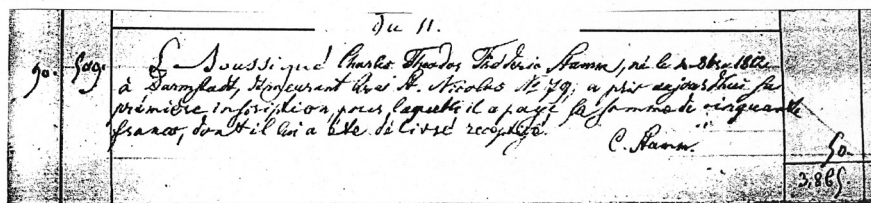 Du 11.
50. 509. Le Soussigné Charles Théodor Fréderic Stamm, né le 8bre 1812
à Darmstadt, demeurant quai St. Nicolas No 79, a pris aujourd'hui sa
prémière inscription, pour laquelle il a payé la somme de cinquante
francs, dont il lui a été délivré récépissé.
C. Stamm.
50.
3,865.